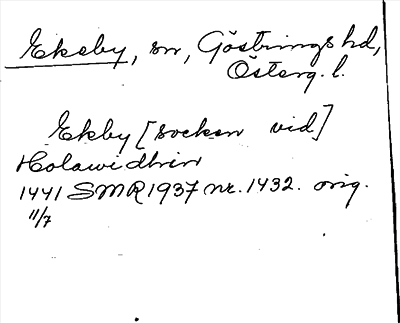 Ekeby, sn, Göstrings hd,
Österg. l.
Ekby [socken vid]
Holawidhin
1441 SMR 1937 nr. 1432. orig.
11/7